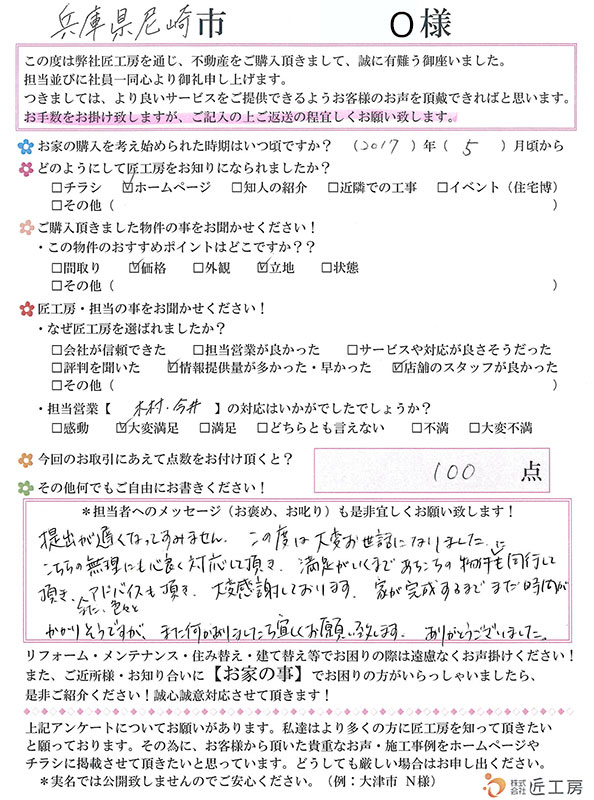 兵庫県尼崎市 O様
この度は弊社匠工房を通じ、不動産をご購入頂きまして、誠に有難う御座いました。
担当並びに社員一同心より御礼申し上げます。
つきましては、より良いサービスをご提供できるようお客様のお声を頂戴できればと思います。
お手数をお掛け致しますが、ご記入の上ご返送の程宜しくお願い致します。
お家の購入を考え始められた時期はいつ頃ですか？ （2017）年（5）月頃から
どのようにして匠工房をお知りになられましたか？
□チラシ ☑ホームページ □知人の紹介 □近隣での工事 □イベント（住宅博）
□その他（ ）
ご購入頂きました物件の事をお聞かせください！
・この物件のおすすめポイントはどこですか？？
□間取り ☑価格 □外観 ☑立地 □状態
□その他（ ）
匠工房・担当の事をお聞かせください！
・なぜ匠工房を選ばれましたか？
□会社が信頼できた □担当営業が良かった □サービスや対応が良さそうだった
□評判を聞いた ☑情報提供量が多かった・早かった ☑店舗のスタッフが良かった
□その他（ ）
・担当営業【 木村・今井 】の対応はいかがでしたでしょうか？
□感動 ☑大変満足 □満足 □どちらとも言えない □不満 □大変不満
今回のお取引にあえて点数をお付け頂くと？ 100 点
その他何でもご自由にお書きください！
＊担当者へのメッセージ（お褒め、お叱り）も是非宜しくお願い致します！
提出が遅くなってすみません。この度は大変お世話になりました。
こちらの無理にも心良く対応して頂き、満足がいくまであちこちの物件に同行して
頂き、また、色々とアドバイスも頂き、大変感謝しております。家が完成するまでまだ時間が
かかりそうですが、また何かありましたら宜しくお願い致します。ありがとうございました。
リフォーム・メンテナンス・住み替え・建て替え等でお困りの際は遠慮なくお声掛けください！
また、ご近所様・お知り合いに【お家の事】でお困りの方がいらっしゃいましたら、
是非ご紹介ください！誠心誠意対応させて頂きます！
上記アンケートについてお願いがあります。私達はより多くの方に匠工房を知って頂きたい
と願っております。その為に、お客様から頂いた貴重なお声・施工事例をホームページや
チラシに掲載させて頂きたいと思っています。どうしても厳しい場合はお申し出ください。
＊実名では公開致しませんのでご安心ください。（例：大津市 N様）
株式会社 匠工房